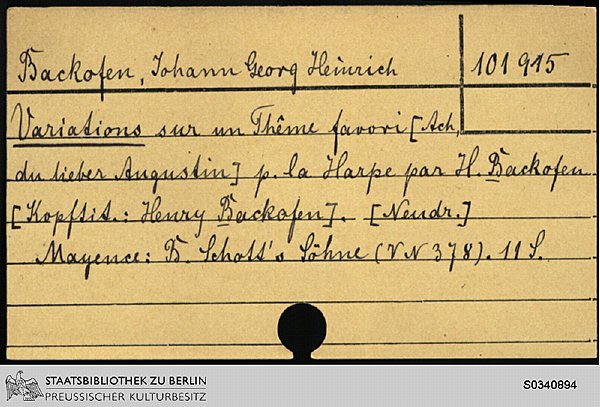 Backofen, Johann Georg Heinrich
101 915
Variations sur un Thême favori [Ach,
du lieber Augustin] p. la Harpe par H. Backofen
[Kopftit.: Henry Backofen]. [Neudr.]
Mayence: B. Schott's Söhne (VN 378). 11 S.
STAATSBIBLIOTHEK ZU BERLIN
PREUSSISCHER KULTURBESITZ
S0340894